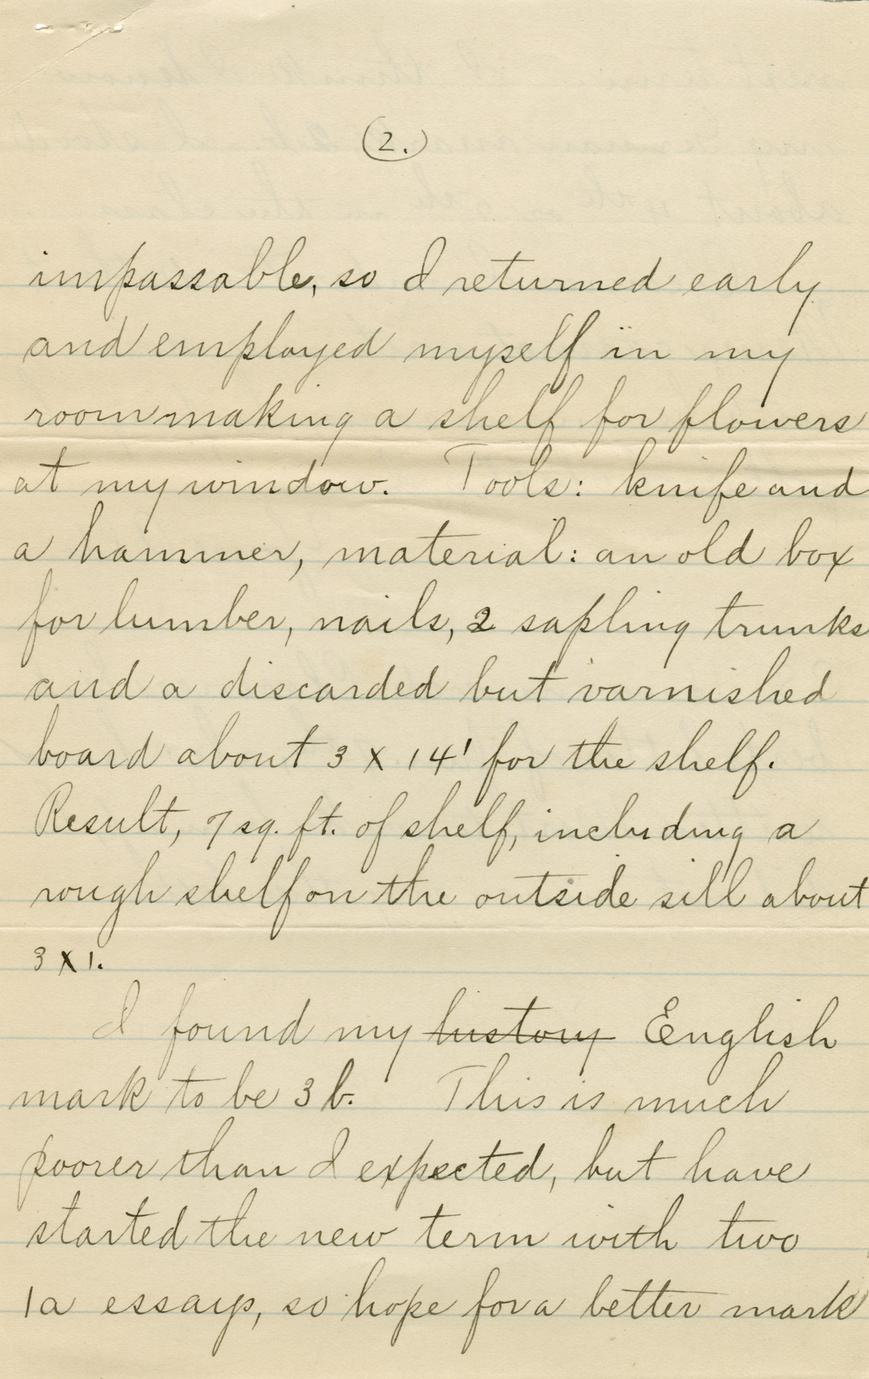 (2.)
impassable, so I returned early
and employed myself in my
room making a shelf for flowers
at my window. Tools: knife and
a hammer, material: an old box
for lumber, nails, 2 sapling trunks
and a discarded but varnished
board about 3 x 14' for the shelf.
Result, 7 sq. ft. of shelf, including a
rough shelf on the outside sill about
3 x 1.
I found my history English
mark to be 3 b. This is much
poorer than I expected, but have
started the new term with two
1a essays, so hope for a better mark